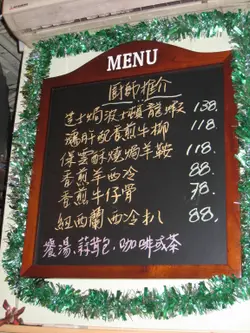 MENU
廚師推介
芝士焗波士頓龍蝦 138.
鵝肝配香煎牛柳 118.
保雲酥燒焗羊鞍 118.
香煎羊西冷 88.
香煎牛仔骨 78.
紐西蘭西冷扒 88.
餐湯、蒜茸包、咖啡或茶